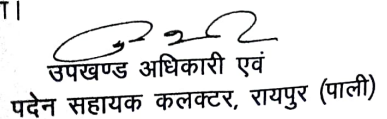 उपखण्ड अधिकारी एवं
पदेन सहायक कलक्टर, रायपुर (पाली)